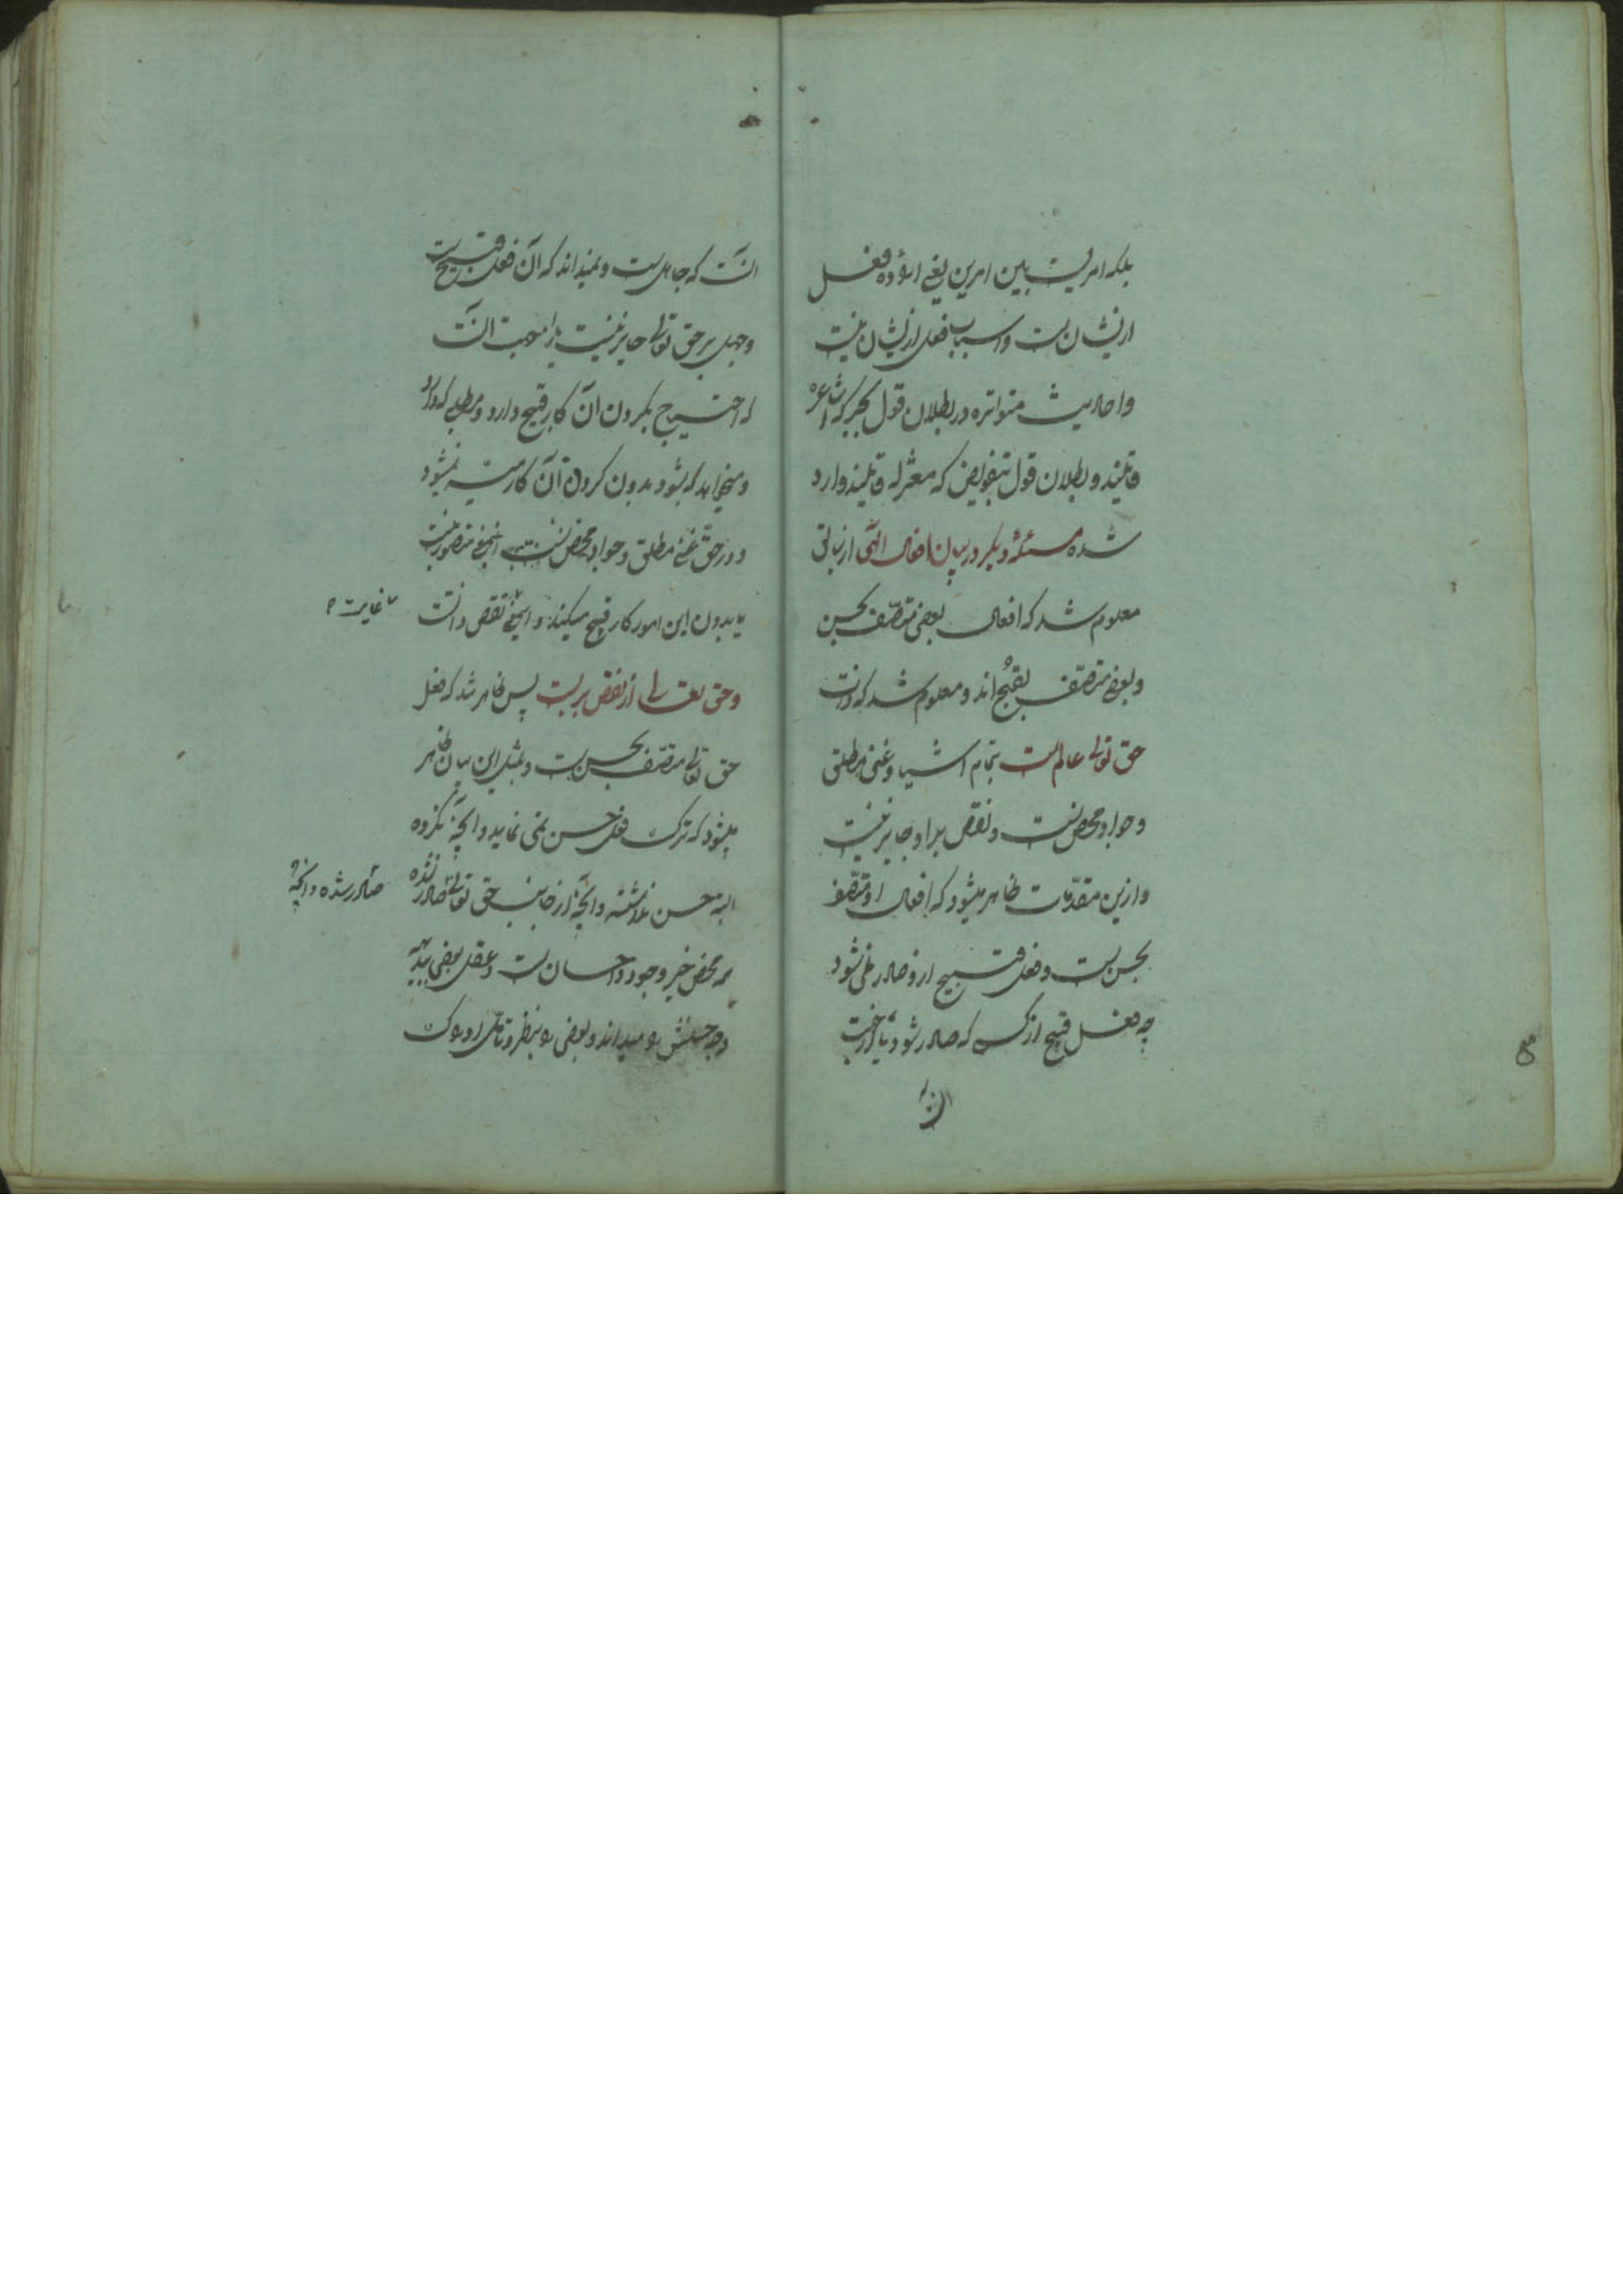 بلکه امریست بین امرین یعنی اراده فعل
ازیشانست و اسباب فعل ازیشان نیست
و احادیث متواتره در بطلان قول بجبر که اشاعره
قائلند و بطلان قول بتفویض که معتزله قائلند وارد
شده مسئلهٔ دیگر در بیان افعال الهی
معلوم شد که افعال بعضی متصف بحسن
و بعضی متصف بقبح اند و معلوم شد که
حق تعالی عالم است بتمام اشیا و غنی مطلق
و جواد محض است و نقص بر او جایز نیست
و ازین مقدمات ظاهر میشود که افعال او متصف
بحسن است و فعل قبیح ازو صادر نمی شود
چه فعل قبیح از کسی که صادر شود
انست که جاهل است و نمیداند که آن فعل قبیح است
و جهل بر حق تعالی جایز نیست یا بجهت آنست
که احتیاج بکردن آن کار قبیح دارد و مطلبی که دارد
و میخواهد که بشود بدون کردن آن کار میسر نمیشود
و در حق غنی مطلق و جواد محض اینمعنی متصور نیست
یا بدون این امور کار قبیح میکند و اینمعنی نقص است
غایت
و حق تعالی از نقص بریست پس ظاهر شد که فعل
حق تعالی متصف بحسن است و بمثل این بیان ظاهر
میشود که ترک فعل حسن نمی نماید و آنچه نکرده
البته حسن نداشته و آنچه از جانب حق تعالی صادر نشده
صادر شده و آنچه
همه محض خیر وجود و احسان است و عقل بعضی ببدیهه
وجه حسنش را میداند و بعضی را بنظر و تأمل